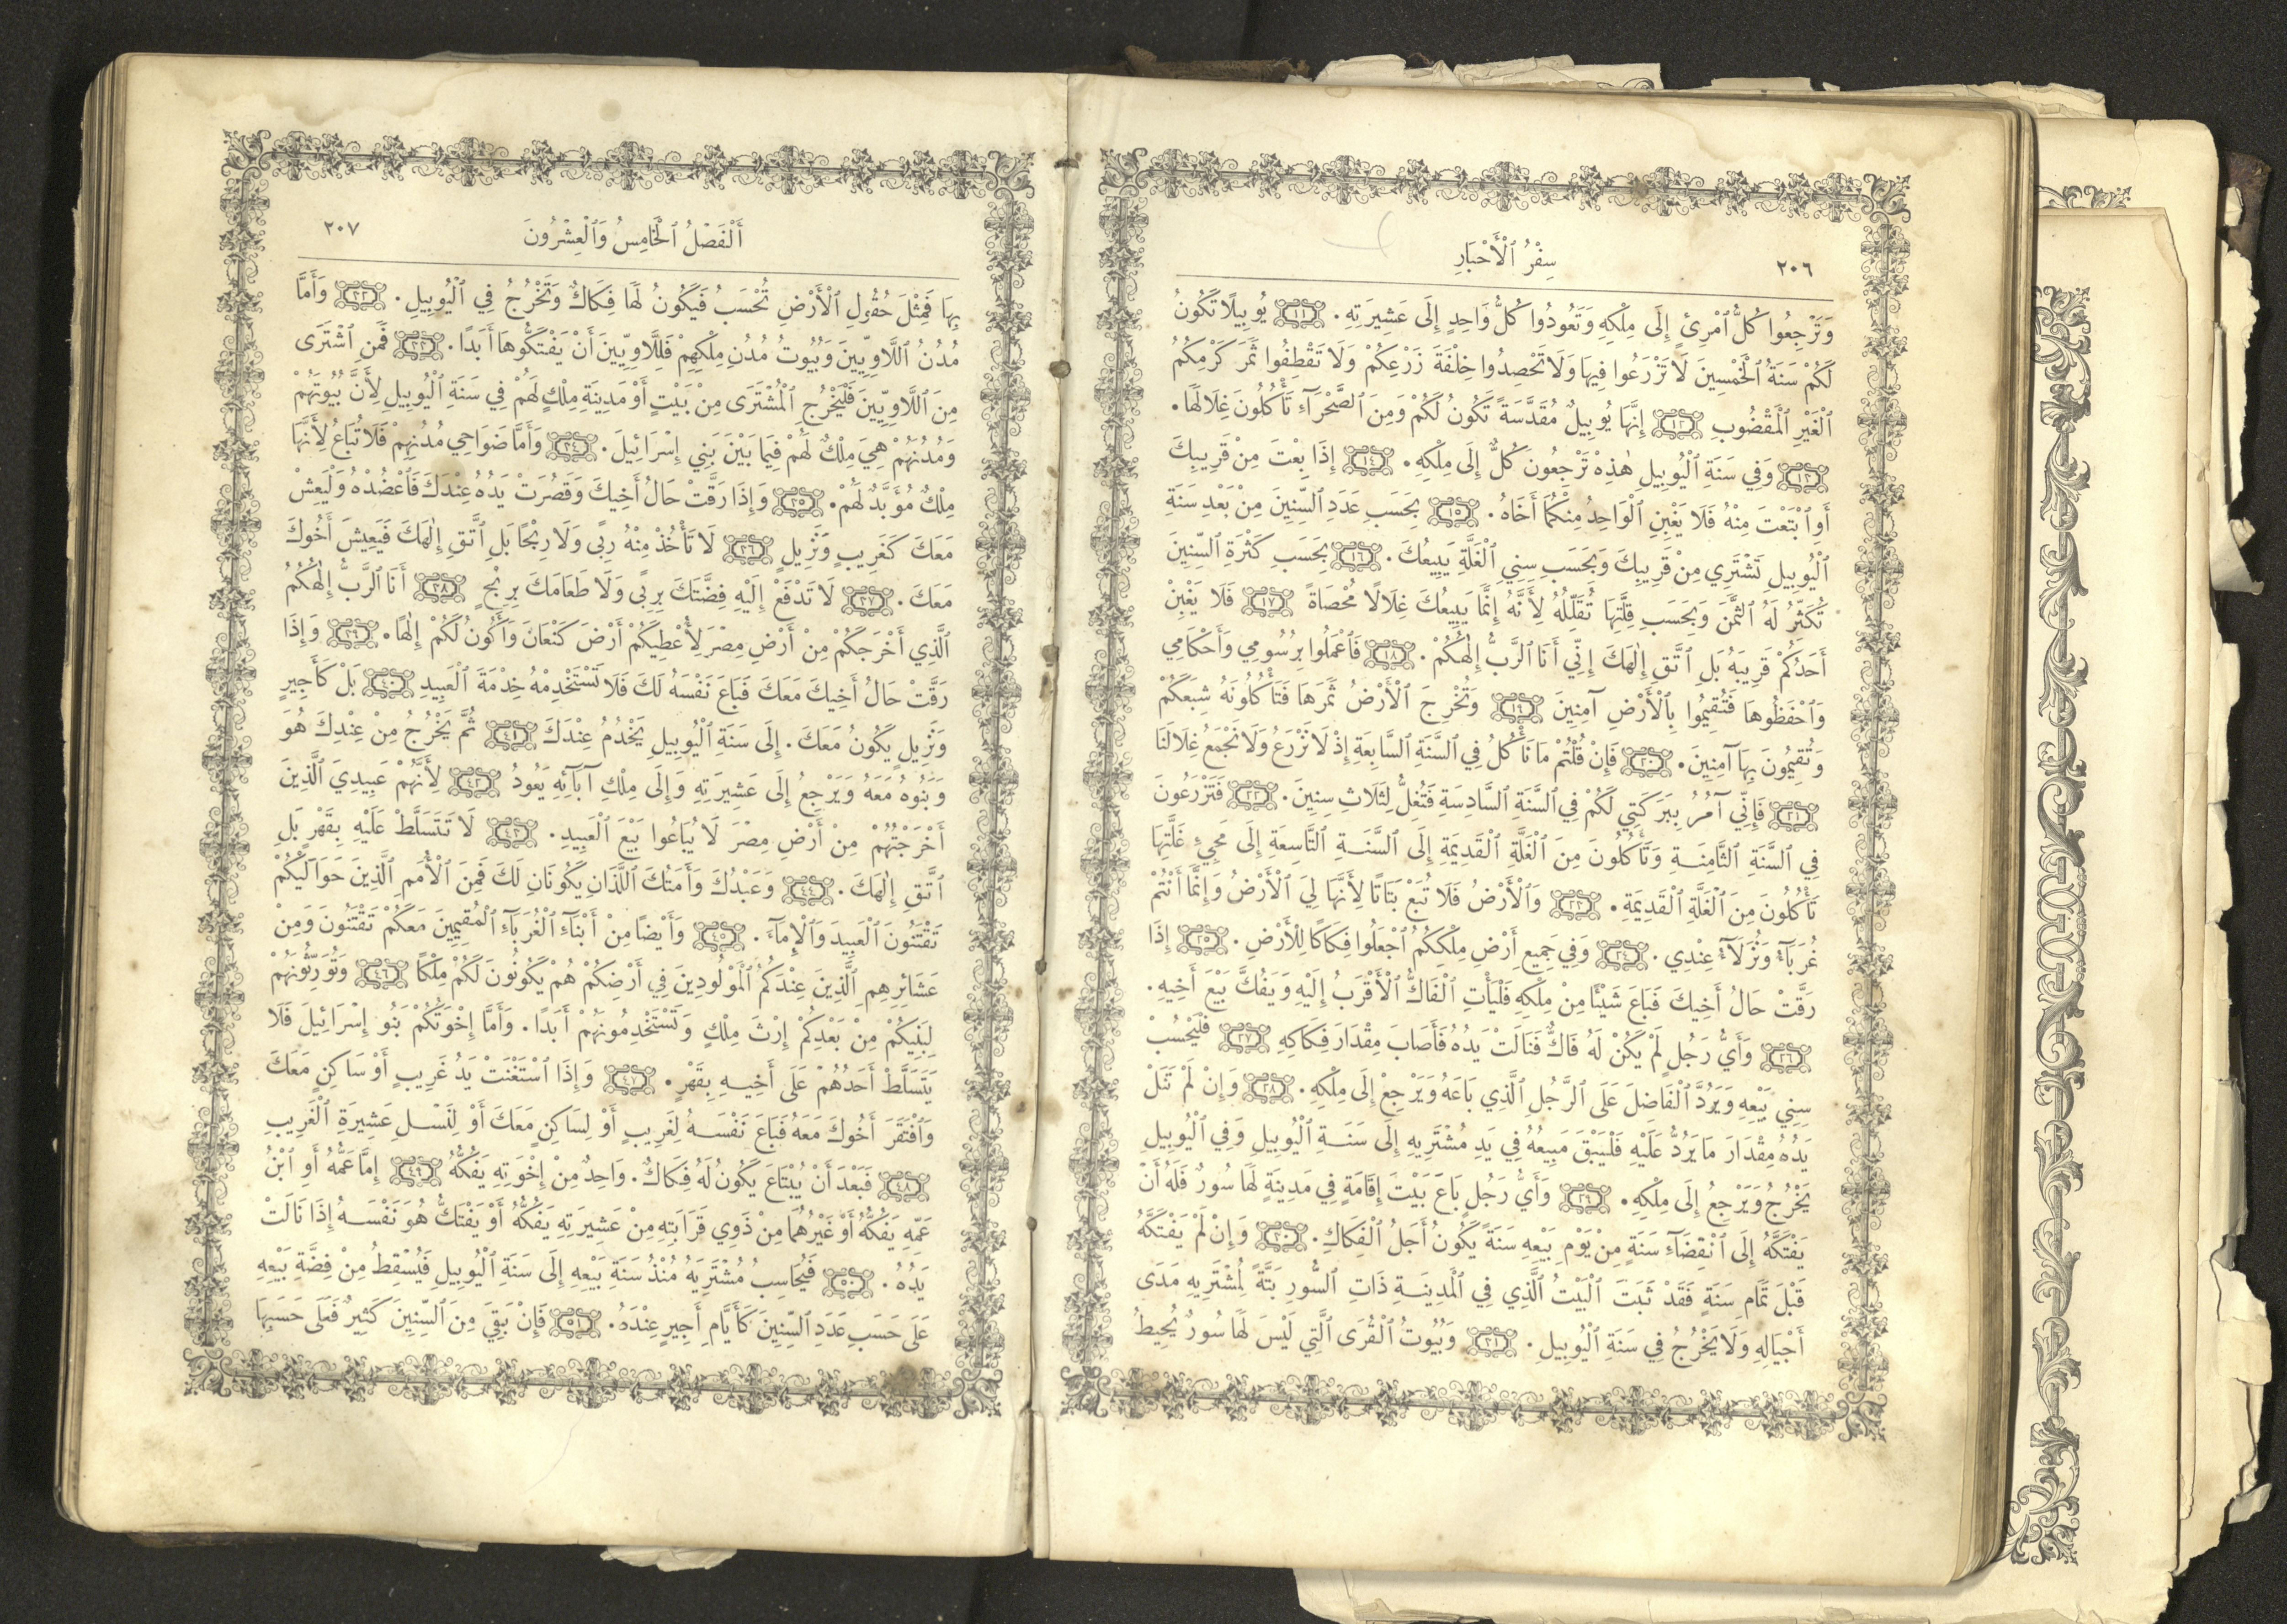 ٢٠٦
سِفْرُ ٱلْأَحْبَارِ
وَتَرْجِعُوا كُلُّ ٱمْرِئٍ إِلَى مِلْكِهِ وَتَعُودُوا كُلُّ وَاحِدٍ إِلَى عَشِيرَتِهِ. ١١ يُوبِيلًا تَكُونُ
لَكُمْ سَنَةُ ٱلْخَمْسِينَ لَا تَزْرَعُوا فِيهَا وَلَا تَحْصِدُوا خِلْفَةَ زَرْعِكُمْ وَلَا تَقْطِفُوا ثَمَرَ كَرْمِكُمُ
ٱلْغَيْرِ ٱلْمَقْضُوبِ ١٢ إِنَّهَا يُوبِيلٌ مُقَدَّسَةً تَكُونُ لَكُمْ وَمِنَ ٱلصَّحْرَآءِ تَأْكُلُونَ غِلَالَهَا.
١٣ وَفِي سَنَةِ ٱلْيُوبِيلِ هٰذِهْ تَرْجِعُونَ كُلٌّ إِلَى مِلْكِهِ. ١٤ إِذَا بِعْتَ مِنْ قَرِيبِكَ
أَوِ ٱبْتَعْتَ مِنْهُ فَلَا يَغْبِنِ ٱلْوَاحِدُ مِنْكُمَا أَخَاهُ. ١٥ بِحَسَبِ عَدَدِ ٱلسِّنِينَ مِنْ بَعْدِ سَنَةِ
ٱلْيُوبِيلِ تَشْتَرِي مِنْ قَرِيبِكَ وَبِحَسَبِ سِنِي ٱلْغَلَّةِ يَبِيعُكَ. ١٦ بِحَسَبِ كَثْرَةِ ٱلسِّنِينَ
تُكَثِّرُ لَهُ ٱلثَّمَنَ وَبِحَسَبِ قِلَّتِهَا تُقَلِّلُهُ لِأَنَّهُ إِنَّمَا يَبِيعُكَ غِلَالًا مُحْصَاةً ١٧ فَلَا يَغْبِنْ
أَحَدُكُمْ قَرِيبَهُ بَلِ ٱتَّقِ إِلٰهَكَ إِنِّي أَنَا ٱلرَّبُّ إِلٰهُكُمْ. ١٨ فَٱعْمَلُوا بِرُسُومِي وَأَحْكَامِي
وَٱحْفَظُوهَا فَتُقِيمُوا بِٱلْأَرْضِ آمِنِينَ ١٩ وَتُخْرِجَ ٱلْأَرْضُ ثَمَرَهَا فَتَأْكُلُونَهُ شِبَعَكُمْ
وَتُقِيمُونَ بِهَا آمِنِينَ. ٢٠ فَإِنْ قُلْتُمْ مَا نَأْكُلُ فِي ٱلسَّنَةِ ٱلسَّابِعَةِ إِذْ لَا نَزْرَعُ وَلَا نَجْمَعُ غِلَالَنَا
٢١ فَإِنِّي آمُرُ بِبَرَكَتِي لَكُمْ فِي ٱلسَّنَةِ ٱلسَّادِسَةِ فَتُغِلُّ لِثَلَاثِ سِنِينَ. ٢٢ فَتَزْرَعُونَ
فِي ٱلسَّنَةِ ٱلثَّامِنَةِ وَتَأْكُلُونَ مِنَ ٱلْغَلَّةِ ٱلْقَدِيمَةِ إِلَى ٱلسَّنَةِ ٱلتَّاسِعَةِ إِلَى مَجِيءِ غَلَّتِهَا
تَأْكُلُونَ مِنَ ٱلْغَلَّةِ ٱلْقَدِيمَةِ. ٢٣ وَٱلْأَرْضُ فَلَا تُبَعْ بَتَاتًا لِأَنَّهَا لِيَ ٱلْأَرْضُ وَإِنَّمَا أَنْتُمْ
غُرَبَآءُ وَنُزَلَآءُ عِنْدِي. ٢٤ وَفِي جَمِيعِ أَرْضِ مِلْكِكُمُ ٱجْعَلُوا فِكَاكًا لِلْأَرْضِ. ٢٥ إِذَا
رَقَّتْ حَالُ أَخِيكَ فَبَاعَ شَيْئًا مِنْ مِلْكِهِ فَلْيَأْتِ ٱلْفَاكُّ ٱلْأَقْرَبُ إِلَيْهِ وَيَفُكَّ بَيْعَ أَخِيهِ.
٢٦ وَأَيُّ رَجُلٍ لَمْ يَكُنْ لَهُ فَاكٌّ فَنَالَتْ يَدُهُ فَأَصَابَ مِقْدَارَ فِكَاكِهِ ٢٧ فَلْيَحْسُبْ
سِنِي بَيْعِهِ وَيَرُدَّ ٱلْفَاضِلَ عَلَى ٱلرَّجُلِ ٱلَّذِي بَاعَهُ وَيَرْجِعْ إِلَى مِلْكِهِ. ٢٨ وَإِنْ لَمْ تَنَلْ
يَدُهُ مِقْدَارَ مَا يَرُدُّ عَلَيْهِ فَلْيَبْقَ مَبِيعُهُ فِي يَدِ مُشْتَرِيهِ إِلَى سَنَةِ ٱلْيُوبِيلِ وَفِي ٱلْيُوبِيلِ
يَخْرُجُ وَيَرْجِعُ إِلَى مِلْكِهِ. ٢٩ وَأَيُّ رَجُلٍ بَاعَ بَيْتَ إِقَامَةٍ فِي مَدِينَةٍ لَهَا سُورٌ فَلَهُ أَنْ
يَفْتَكَّهُ إِلَى ٱنْقِضَآءِ سَنَةٍ مِنْ يَوْمِ بَيْعِهِ سَنَةً يَكُونُ أَجَلُ ٱلْفَكَاكِ. ٣٠ وَإِنْ لَمْ يَفْتَكَّهُ
قَبْلَ تَمَامِ سَنَةٍ فَقَدْ ثَبَتَ ٱلْبَيْتُ ٱلَّذِي فِي ٱلْمَدِينَةِ ذَاتِ ٱلسُّورِ بَتَّةً لِمُشْتَرِيهِ مَدَى
أَجْيَالِهِ وَلَا يَخْرُجُ فِي سَنَةِ ٱلْيُوبِيلِ. ٣١ وَبُيُوتُ ٱلْقُرَى ٱلَّتِي لَيْسَ لَهَا سُورٌ يُحِيطُ
أَلْفَصْلُ ٱلْخَامِسُ وَٱلْعِشْرُونَ
٢٠٧
بِهَا فَمِثْلَ حُقُولِ ٱلْأَرْضِ تُحْسَبُ فَيَكُونُ لَهَا فِكَاكٌ وَتَخْرُجُ فِي ٱلْيُوبِيلِ. ٣٢ وَأَمَّا
مُدُنُ ٱللَّاوِيِّينَ وَبُيُوتُ مُدُنِ مِلْكِهِمْ فَلِلَّاوِيِّينَ أَنْ يَفْتَكُّوهَا أَبَدًا. ٣٣ فَمَنِ ٱشْتَرَى
مِنَ ٱللَّاوِيِّينَ فَلْيَخْرُجِ ٱلْمُشْتَرَى مِنْ بَيْتٍ أَوْ مَدِينَةِ مِلْكٍ لَهُمْ فِي سَنَةِ ٱلْيُوبِيلِ لِأَنَّ بُيُوتَهُمْ
وَمُدُنَهُمْ هِيَ مِلْكٌ لَهُمْ فِيمَا بَيْنَ بَنِي إِسْرَائِيلَ. ٣٤ وَأَمَّا ضَوَاحِي مُدُنِهِمْ فَلَا تُبَاعُ لِأَنَّهَا
مِلْكٌ مُؤَبَّدٌ لَهُمْ. ٣٥ وَإِذَا رَقَّتْ حَالُ أَخِيكَ وَقَصُرَتْ يَدُهُ عِنْدَكَ فَٱعْضُدْهُ وَلْيَعِشْ
مَعَكَ كَغَرِيبٍ وَنَزِيلٍ ٣٦ لَا تَأْخُذْ مِنْهُ رِبًى وَلَا رِبْحًا بَلِ ٱتَّقِ إِلٰهَكَ فَيَعِيشَ أَخُوكَ
مَعَكَ. ٣٧ لَا تَدْفَعْ إِلَيْهِ فِضَّتَكَ بِرِبًى وَلَا طَعَامَكَ بِرِبْحٍ ٣٨ أَنَا ٱلرَّبُّ إِلٰهُكُمُ
ٱلَّذِي أَخْرَجَكُمْ مِنْ أَرْضِ مِصْرَ لِأُعْطِيَكُمْ أَرْضَ كَنْعَانَ وَأَكُونَ لَكُمْ إِلٰهًا. ٣٩ وَإِذَا
رَقَّتْ حَالُ أَخِيكَ مَعَكَ فَبَاعَ نَفْسَهُ لَكَ فَلَا تَسْتَخْدِمْهُ خِدْمَةَ ٱلْعَبِيدِ ٤٠ بَلْ كَأَجِيرٍ
وَنَزِيلٍ يَكُونُ مَعَكَ. إِلَى سَنَةِ ٱلْيُوبِيلِ يَخْدُمُ عِنْدَكَ ٤١ ثُمَّ يَخْرُجُ مِنْ عِنْدِكَ هُوَ
وَبَنُوهُ مَعَهُ وَيَرْجِعُ إِلَى عَشِيرَتِهِ وَإِلَى مِلْكِ آبَآئِهِ يَعُودُ ٤٢ لِأَنَّهُمْ عَبِيدِيَ ٱلَّذِينَ
أَخْرَجْتُهُمْ مِنْ أَرْضِ مِصْرَ لَا يُبَاعُوا بَيْعَ ٱلْعَبِيدِ. ٤٣ لَا تَتَسَلَّطْ عَلَيْهِ بِقَهْرٍ بَلِ
ٱتَّقِ إِلٰهَكَ. ٤٤ وَعَبْدُكَ وَأَمَتُكَ ٱللَّذَانِ يَكُونَانِ لَكَ فَمِنَ ٱلْأُمَمِ ٱلَّذِينَ حَوَالَيْكُمْ
تَقْتَنُونَ ٱلْعَبِيدَ وَٱلْإِمَآءَ. ٤٥ وَأَيْضًا مِنْ أَبْنَآءِ ٱلْغُرَبَآءِ ٱلْمُقِيمِينَ مَعَكُمْ تَقْتَنُونَ وَمِنْ
عَشَائِرِهِمِ ٱلَّذِينَ عِنْدَكُمُ ٱلْمَوْلُودِينَ فِي أَرْضِكُمْ هُمْ يَكُونُونَ لَكُمْ مِلْكًا ٤٦ وَتُوَرِّثُونَهُمْ
لِبَنِيكُمْ مِنْ بَعْدِكُمْ إِرْثَ مِلْكٍ وَتَسْتَخْدِمُونَهُمْ أَبَدًا. وَأَمَّا إِخْوَتُكُمْ بَنُو إِسْرَائِيلَ فَلَا
يَتَسَلَّطْ أَحَدُهُمْ عَلَى أَخِيهِ بِقَهْرٍ. ٤٧ وَإِذَا ٱسْتَغْنَتْ يَدُ غَرِيبٍ أَوْ سَاكِنٍ مَعَكَ
وَٱفْتَقَرَ أَخُوكَ مَعَهُ فَبَاعَ نَفْسَهُ لِغَرِيبٍ أَوْ لِسَاكِنٍ مَعَكَ أَوْ لِنَسْلِ عَشِيرَةِ ٱلْغَرِيبِ
٤٨ فَبَعْدَ أَنْ يُبْتَاعَ يَكُونُ لَهُ فِكَاكٌ. وَاحِدٌ مِنْ إِخْوَتِهِ يَفُكُّهُ ٤٩ إِمَّا عَمُّهُ أَوِ ٱبْنُ
عَمِّهِ يَفُكُّهُ أَوْ غَيْرُهُمَا مِنْ ذَوِي قَرَابَتِهِ مِنْ عَشِيرَتِهِ يَفُكُّهُ أَوْ يَفْتَكُّ هُوَ نَفْسَهُ إِذَا نَالَتْ
يَدُهُ. ٥٠ فَيُحَاسِبُ مُشْتَرِيَهُ مُنْذُ سَنَةِ بَيْعِهِ إِلَى سَنَةِ ٱلْيُوبِيلِ فَيُسْقِطُ مِنْ فِضَّةِ بَيْعِهِ
عَلَى حَسَبِ عَدَدِ ٱلسِّنِينَ كَأَيَّامِ أَجِيرٍ عِنْدَهُ. ٥١ فَإِنْ بَقِيَ مِنَ ٱلسِّنِينَ كَثِيرٌ فَعَلَى حَسَبِهَا